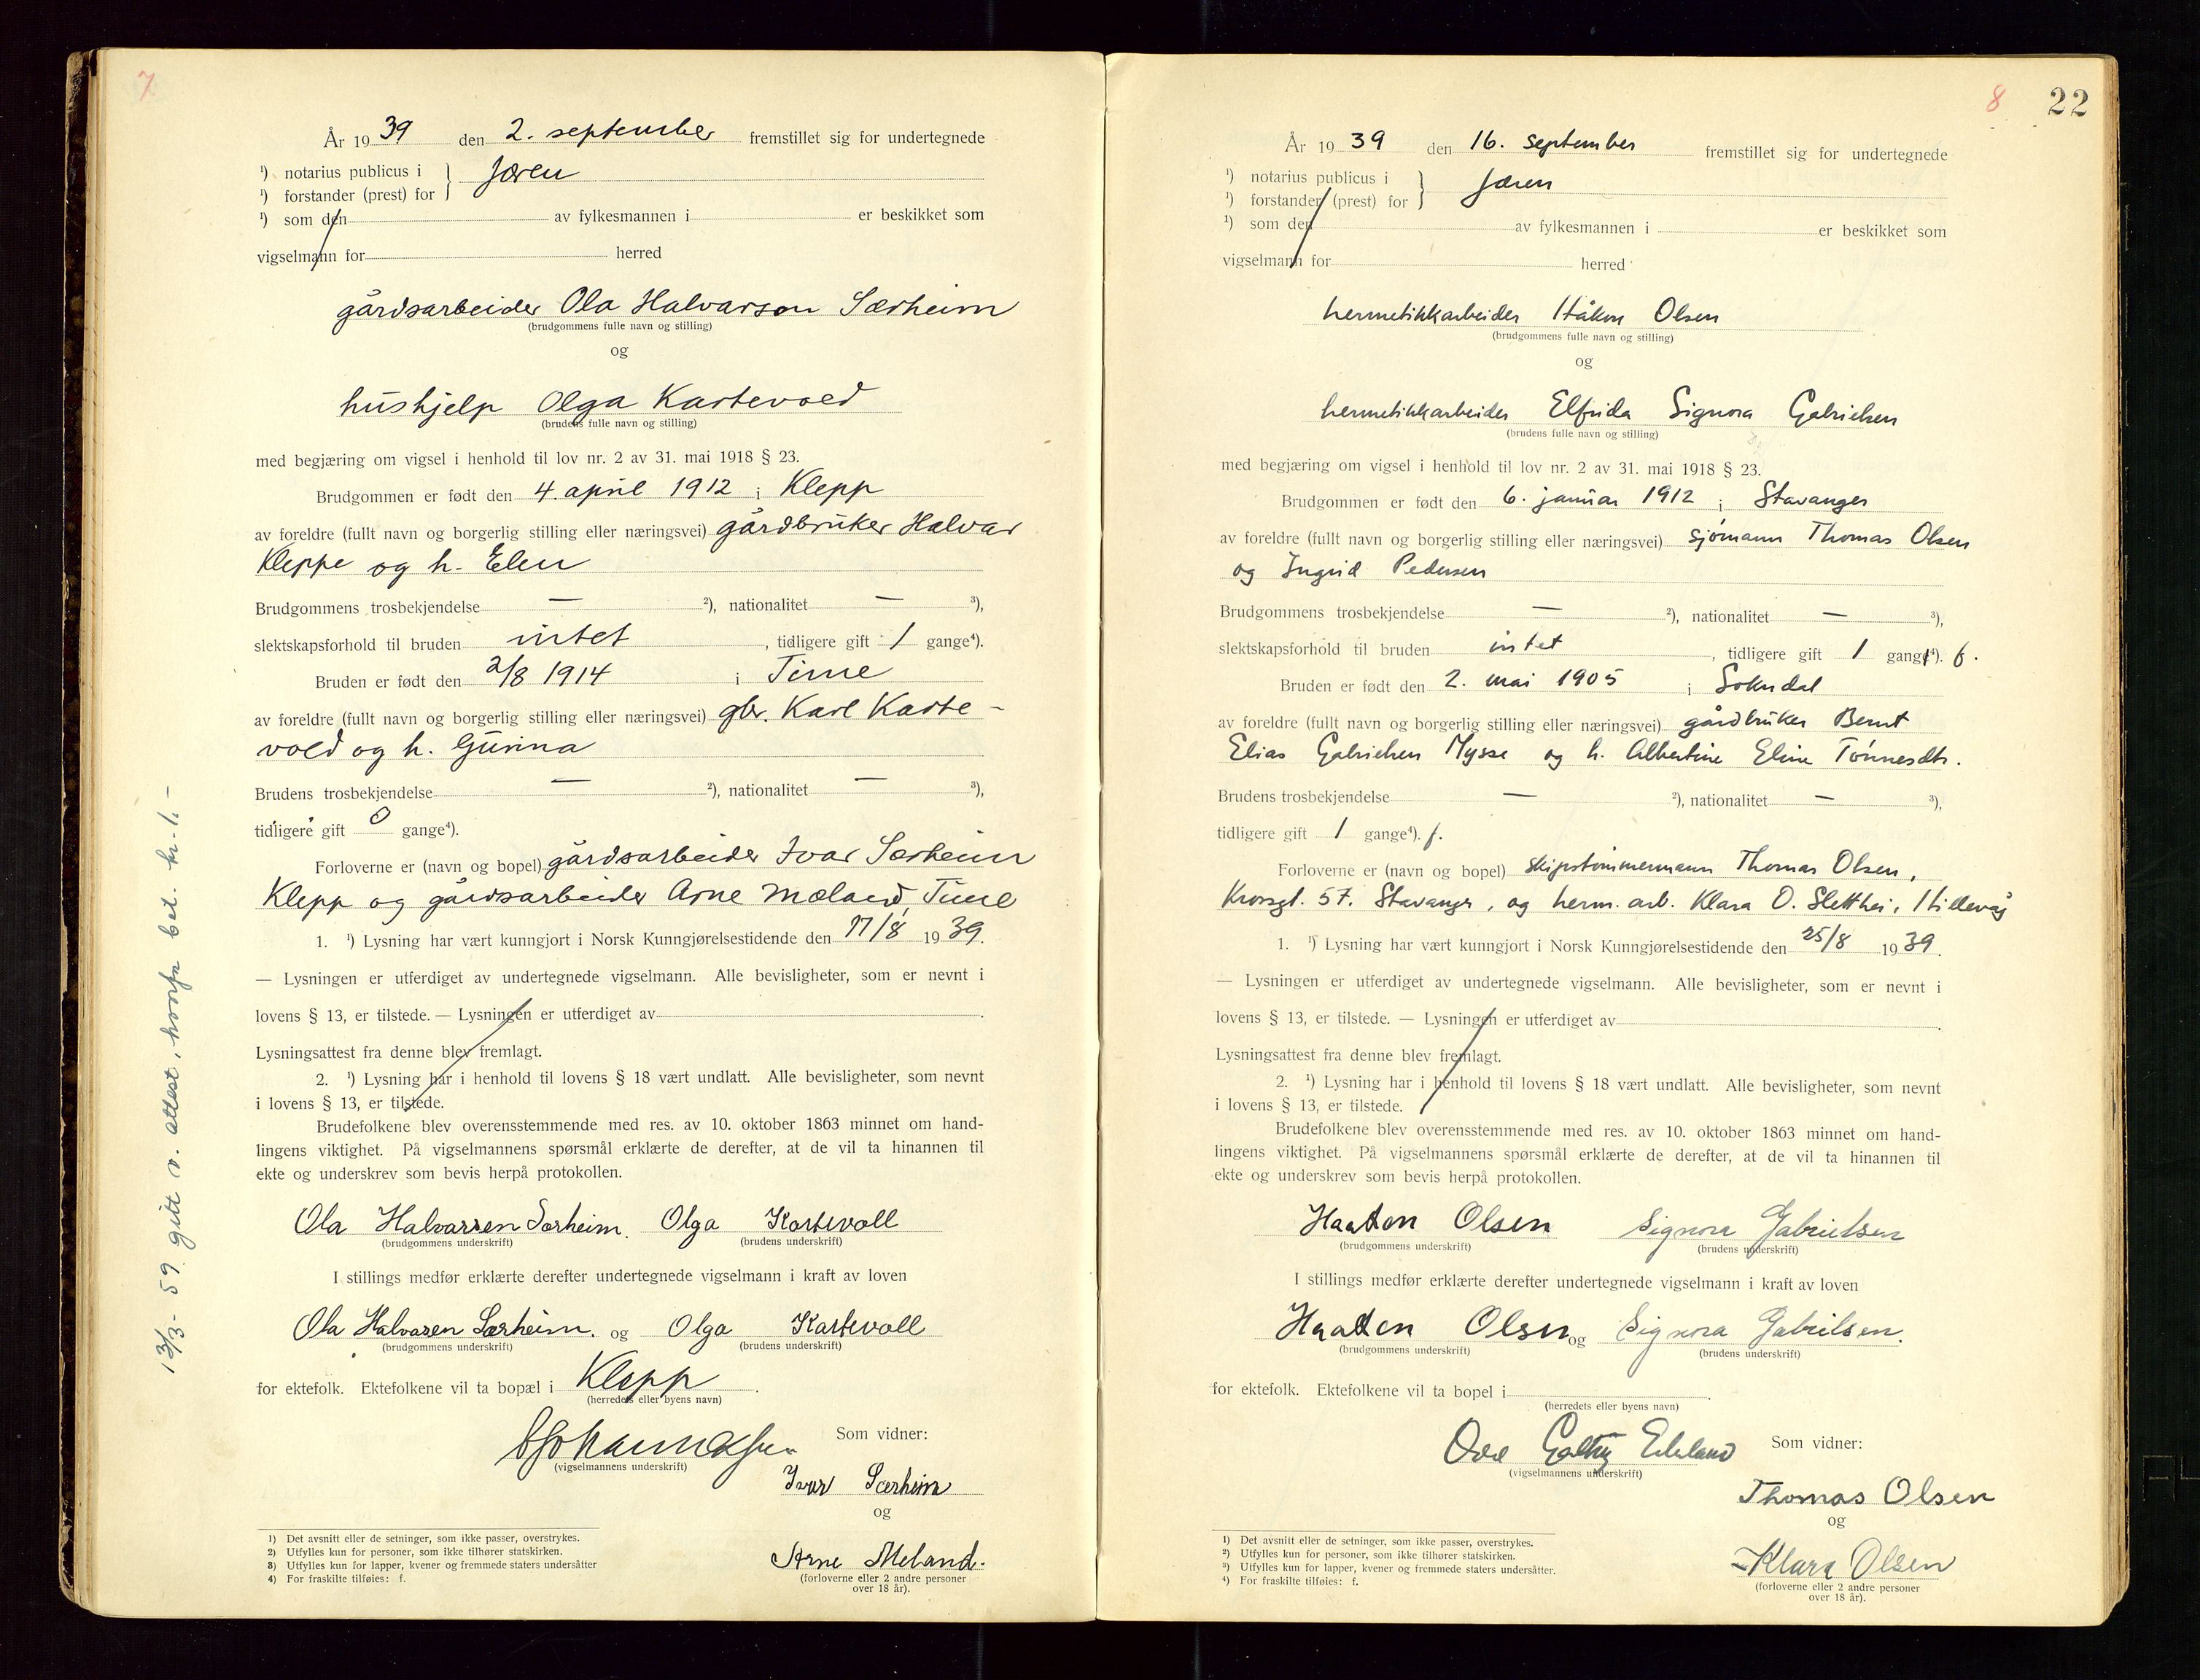 7
År 1939 den 2. september fremstillet sig for undertegnede
¹) notarius publicus i } Jæren
¹) forstander (prest) for
¹) som den av fylkesmannen i er beskikket som
vigselmann for herred
gårdsarbeider Ola Halvarson Særheim
(brudgommens fulle navn og stilling)
og
hushjelp Olga Kartevold
(brudens fulle navn og stilling)
med begjæring om vigsel i henhold til lov nr. 2 av 31. mai 1918 § 23.
Brudgommen er født den 4. april 1912 i Klepp
av foreldre (fullt navn og borgerlig stilling eller næringsvei) gårdbruker Halvar
Kleppe og h. Elen
Brudgommens trosbekjendelse — ²), nationalitet — ³),
slektskapsforhold til bruden intet, tidligere gift 1 gange⁴).
Bruden er født den 2/8 1914 i Time
av foreldre (fullt navn og borgerlig stilling eller næringsvei) gbr. Karl Karte-
vold og h. Gurina
Brudens trosbekjendelse — ²), nationalitet — ³),
tidligere gift 0 gange⁴).
Forloverne er (navn og bopel) gårdsarbeider Ivar Særheim
Klepp og gårdsarbeider Arne Mæland, Time
1. ¹) Lysning har vært kunngjort i Norsk Kunngjørelsestidende den 17/8 1939.
— Lysningen er utferdiget av undertegnede vigselmann. Alle bevisligheter, som er nevnt i
lovens § 13, er tilstede. — Lysningen er utferdiget av
Lysningsattest fra denne blev fremlagt.
2. ¹) Lysning har i henhold til lovens § 18 vært undlatt. Alle bevisligheter, som nevnt
i lovens § 13, er tilstede.
Brudefolkene blev overensstemmende med res. av 10. oktober 1863 minnet om hand-
lingens viktighet. På vigselmannens spørsmål erklærte de derefter, at de vil ta hinannen til
ekte og underskrev som bevis herpå protokollen.
Ola Halvarsen Særheim. Olga Kartevoll
(brudgommens underskrift) (brudens underskrift)
I stillings medfør erklærte derefter undertegnede vigselmann i kraft av loven
Ola Halvarsen Særheim. og Olga Kartevoll
(brudgommens underskrift) (brudens underskrift)
for ektefolk. Ektefolkene vil ta bopæl i Klepp.
(herredets eller byens navn)
Som vidner:
(vigselmannens underskrift)
Ivar Særheim
og
Arne Meland.
(forloverne eller 2 andre personer
over 18 år).
1) Det avsnitt eller de setninger, som ikke passer, overstrykes.
2) Utfylles kun for personer, som ikke tilhører statskirken.
3) Utfylles kun for lapper, kvener og fremmede staters undersåtter
4) For fraskilte tilføies: f.
13/3-59 gitt v. attest, hvorfor bet. kr. 1.-
8 22
År 1939 den 16. september fremstillet sig for undertegnede
¹) notarius publicus i } Jæren
¹) forstander (prest) for
¹) som den av fylkesmannen i er beskikket som
vigselmann for herred
hermetikkarbeider Håkon Olsen
(brudgommens fulle navn og stilling)
og
hermetikkarbeider Elfrida Signora Gabrielsen
(brudens fulle navn og stilling)
med begjæring om vigsel i henhold til lov nr. 2 av 31. mai 1918 § 23.
Brudgommen er født den 6. januar 1912 i Stavanger
av foreldre (fullt navn og borgerlig stilling eller næringsvei) sjømann Thomas Olsen
og Ingrid Pedersen
Brudgommens trosbekjendelse — ²), nationalitet — ³),
slektskapsforhold til bruden intet, tidligere gift 1 gange⁴). f.
Bruden er født den 2. mai 1905 i Sokndal
av foreldre (fullt navn og borgerlig stilling eller næringsvei) gårdbruker Bernt
Elias Gabrielsen Mysse og h. Albertine Eline Tønnesdtr.
Brudens trosbekjendelse — ²), nationalitet — ³),
tidligere gift 1 gange⁴). f.
Forloverne er (navn og bopel) skipstømmermann Thomas Olsen,
Krossgt. 57. Stavanger, og herm. arb. Klara O. Sletthei, Hillevåg
1. ¹) Lysning har vært kunngjort i Norsk Kunngjørelsestidende den 25/8 1939.
— Lysningen er utferdiget av undertegnede vigselmann. Alle bevisligheter, som er nevnt i
lovens § 13, er tilstede. — Lysningen er utferdiget av
Lysningsattest fra denne blev fremlagt.
2. ¹) Lysning har i henhold til lovens § 18 vært undlatt. Alle bevisligheter, som nevnt
i lovens § 13, er tilstede.
Brudefolkene blev overensstemmende med res. av 10. oktober 1863 minnet om hand-
lingens viktighet. På vigselmannens spørsmål erklærte de derefter, at de vil ta hinannen til
ekte og underskrev som bevis herpå protokollen.
Haakon Olsen Signora Gabrielsen
(brudgommens underskrift) (brudens underskrift)
I stillings medfør erklærte derefter undertegnede vigselmann i kraft av loven
Haakon Olsen og Signora Gabrielsen.
(brudgommens underskrift) (brudens underskrift)
for ektefolk. Ektefolkene vil ta bopel i
(herredets eller byens navn)
Ove Eckland Som vidner:
(vigselmannens underskrift)
Thomas Olsen
og
Klara Olsen
(forloverne eller 2 andre personer
over 18 år).
1) Det avsnitt eller de setninger, som ikke passer, overstrykes.
2) Utfylles kun for personer, som ikke tilhører statskirken.
3) Utfylles kun for lapper, kvener og fremmede staters undersåtter.
4) For fraskilte tilføies: f.